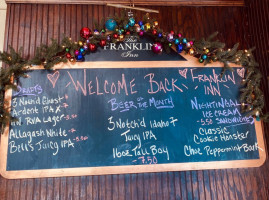 The
FRANKLIN
Inn
WELCOME BACK, FRANKLIN INN
DRAFTS
3 Notch'd Ghost
Ardent IPA X
RVA Lager
Allagash White
Bell's Juicy IPA
BEER THE MONTH
3 Notch'd Idaho 7
Juicy IPA
16oz Tall Boy
7.50
NIGHTINGALE
ICE CREAM
5.50 SANDWICHES
Classic
Cookie Monster
Choc Peppermint Bark